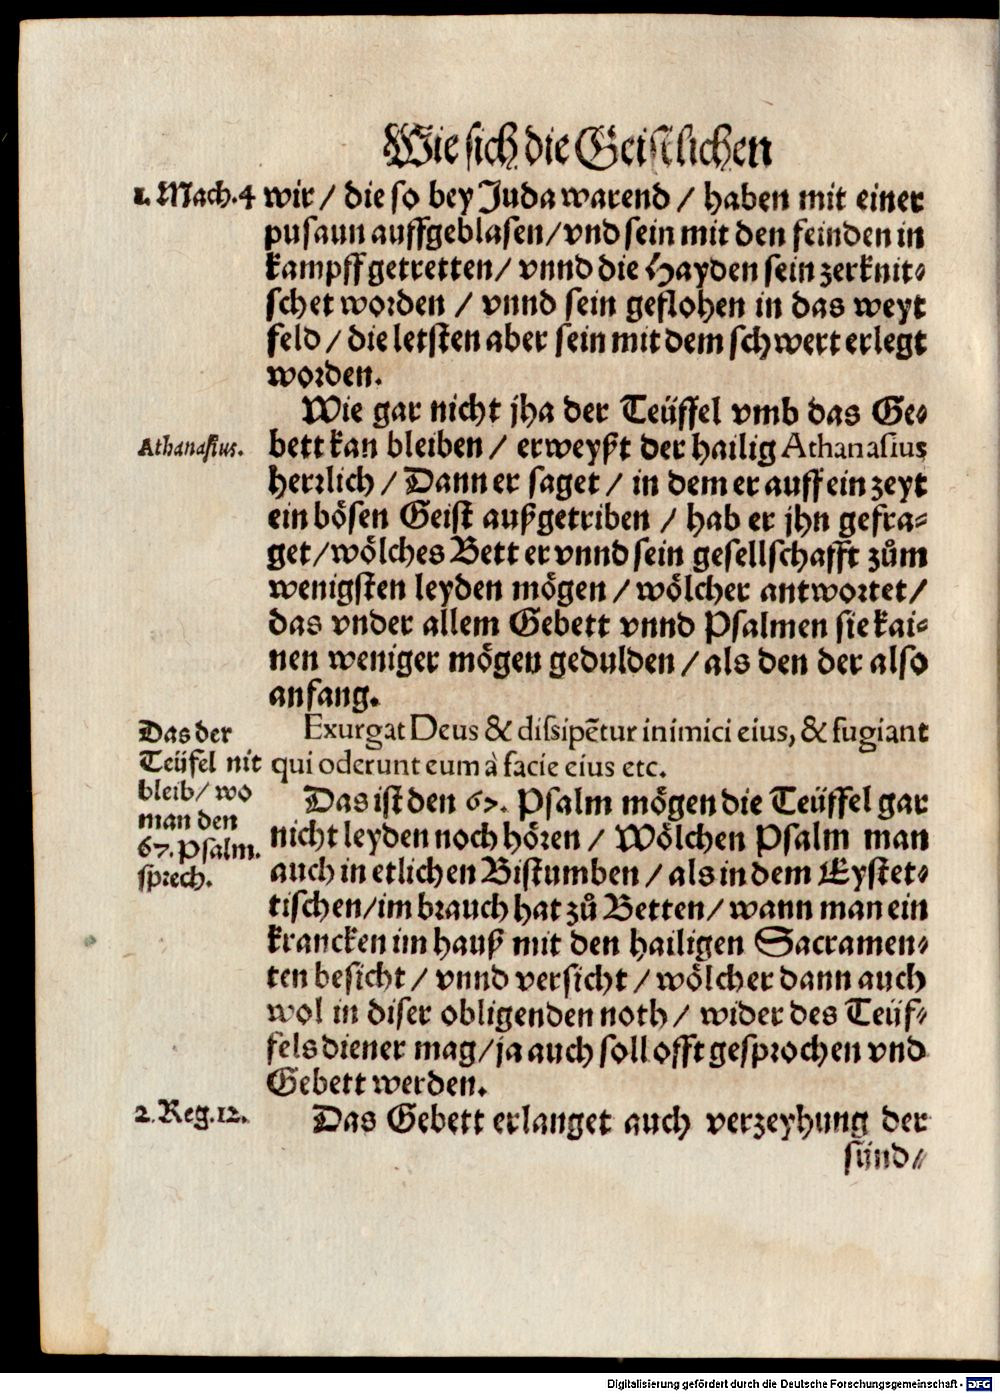 Wie sich die Geistlichen
1. Mach. 4
wir / die so bey Juda warend / haben mit einer
pusaun auffgeblasen / vnd sein mit den feinden in
kampff getretten / vnnd die Hayden sein zerknit⸗
schet worden / vnnd sein geflohen in das weyt
feld / die letsten aber sein mit dem schwert erlegt
worden.
Wie gar nicht jha der Teüffel vmb das Ge⸗
Athanasius.
bett kan bleiben / erweyßt der hailig Athanasius
herrlich / Dann er saget / in dem er auff ein zeyt
ein bösen Geist außgetriben / hab er jhn gefra⸗
get / wölches Bett er vnnd sein gesellschafft zům
wenigsten leyden mögen / wölcher antwortet /
das vnder allem Gebett vnnd Psalmen sie kai⸗
nen weniger mögen gedulden / als den der also
anfang.
Exurgat Deus & dissipẽtur inimici eius, & fugiant
qui oderunt eum à facie eius etc.
Das der
Teüfel nit
bleib / wo
man den
67. Psalm.
sprech.
Das ist den 67. Psalm mögen die Teüffel gar
nicht leyden noch hören / Wölchen Psalm man
auch in etlichen Bistumben / als in dem Eystet⸗
tischen / im brauch hat zů Betten / wann man ein
krancken im hauß mit den hailigen Sacramen⸗
ten besicht / vnnd versicht / wölcher dann auch
wol in diser obligenden noth / wider des Teüf⸗
fels diener mag / ja auch soll offt gesprochen vnd
Gebett werden.
2. Reg. 12.
Das Gebett erlanget auch verzeyhung der
sünd⸗
Digitalisierung gefördert durch die Deutsche Forschungsgemeinschaft - DFG